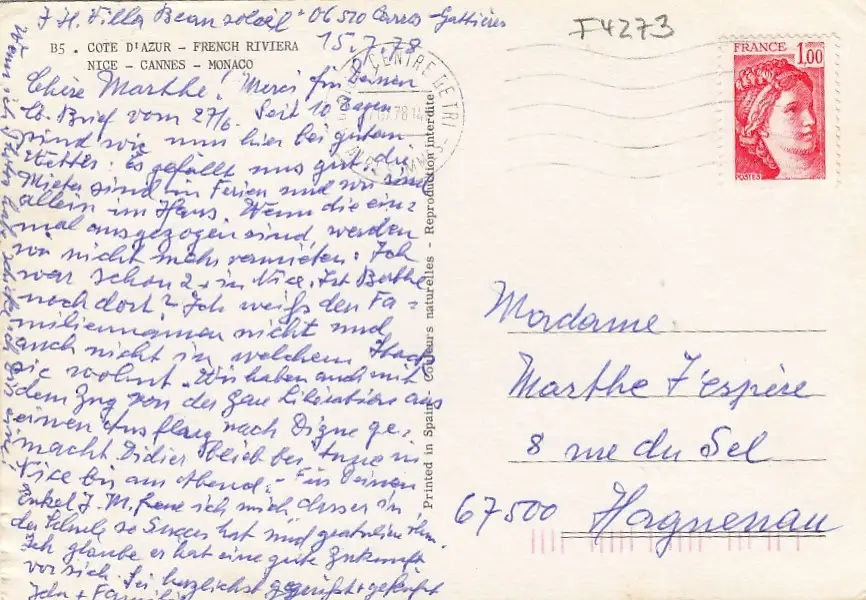 J H. Villa Beausoleil 06510 Carros-Gattières
F4273
15.7.78
B5 . COTE D'AZUR - FRENCH RIVIERA
NICE - CANNES - MONACO
FRANCE 1,00
POSTES
CENTRE DE TRI
Chère Marthe! Merci für Deinen
lb. Brief vom 27/6. Seit 10 Tagen
sind wir nun hier bei gutem
Wetter. Es gefällt uns gut, die
Mieter sind in Ferien und wir sind
allein im Haus. Wenn die ein=
mal ausgezogen sind, werden
wir nicht mehr vermieten. Ich
war schon 2 x in Nice. Ist Berthe
noch dort? Ich weiß den Fa=
miliennamen nicht und
auch nicht in welchem Stock
sie wohnt. Wir haben auch mit
dem Zug von der gare aus
einen Ausflug nach Digne ge=
macht. Didier blieb bei in
Nice bis am Abend. - Für Deinen
Enkel J. M. freue ich mich dass er in
der Schule so Succes hat und gratuliere ihm.
Ich glaube er hat eine gute Zukunft
vor sich. Sei herzlichst gegrüßt + geküßt
Printed in Spain - Couleurs naturelles - Reproduction interdite
Madame
Marthe J'espère
8 rue du Sel
67500 Haguenau